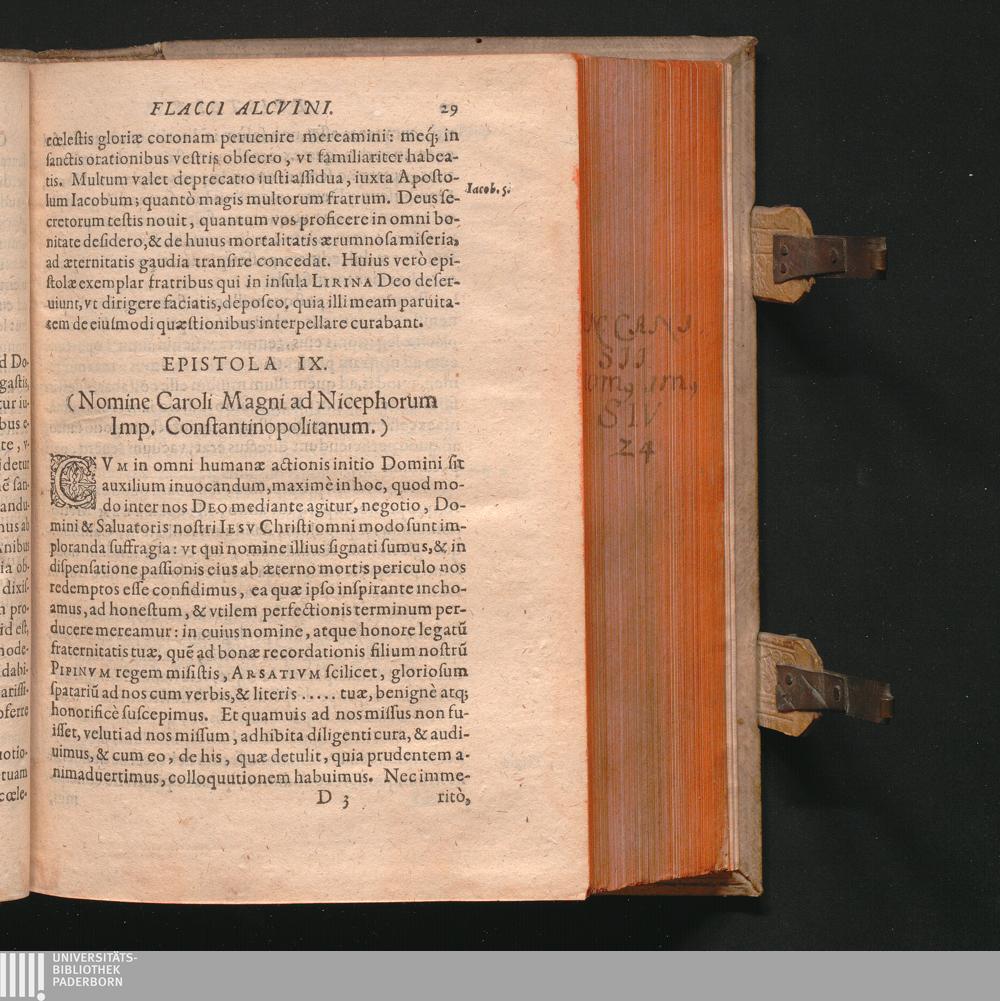 FLACCI ALCVINI. 29
cœlestis gloriæ coronam peruenire mereamini: meq́; in
sanctis orationibus vestris obsecro, vt familiariter habea-
tis. Multum valet deprecatio iusti assidua, iuxta Aposto-
lum Iacobum; quantò magis multorum fratrum. Deus se-
Iacob. 5.
cretorum testis nouit, quantum vos proficere in omni bo-
nitate desidero, & de huius mortalitatis ærumnosa miseria,
ad æternitatis gaudia transire concedat. Huius verò epi-
stolæ exemplar fratribus qui in insula LIRINA Deo deser-
uiunt, vt dirigere faciatis, deposco, quia illi meam paruita-
tem de eiusmodi quæstionibus interpellare curabant.
EPISTOLA IX.
(Nomine Caroli Magni ad Nicephorum
Imp. Constantinopolitanum.)
CVM in omni humanæ actionis initio Domini sit
auxilium inuocandum, maximè in hoc, quod mo-
do inter nos DEO mediante agitur, negotio, Do-
mini & Saluatoris nostri IESV Christi omni modo sunt im-
ploranda suffragia: vt qui nomine illius signati sumus, & in
dispensatione passionis eius ab æterno mortis periculo nos
redemptos esse confidimus, ea quæ ipso inspirante incho-
amus, ad honestum, & vtilem perfectionis terminum per-
ducere mereamur: in cuius nomine, atque honore legatū
fraternitatis tuæ, quē ad bonæ recordationis filium nostrū
PIPINVM regem misistis, ARSATIVM scilicet, gloriosum
spatariū ad nos cum verbis, & literis ..... tuæ, benignè atq;
honorificè suscepimus. Et quamuis ad nos missus non fu-
isset, veluti ad nos missum, adhibita diligenti cura, & audi-
uimus, & cum eo, de his, quæ detulit, quia prudentem a-
nimaduertimus, colloquutionem habuimus. Nec imme-
D 3 ritò,
d Do-
gastis,
tur iu-
bus e-
te, v-
idetur
nē san-
andu-
nus ab
rnibus
ia ob-
dixis-
n pro-
id est,
node-
dabi-
arissi-
oferre
notio-
tuam
cœle-
CANI
SII
SIV
24
UNIVERSITÄTS-
BIBLIOTHEK
PADERBORN